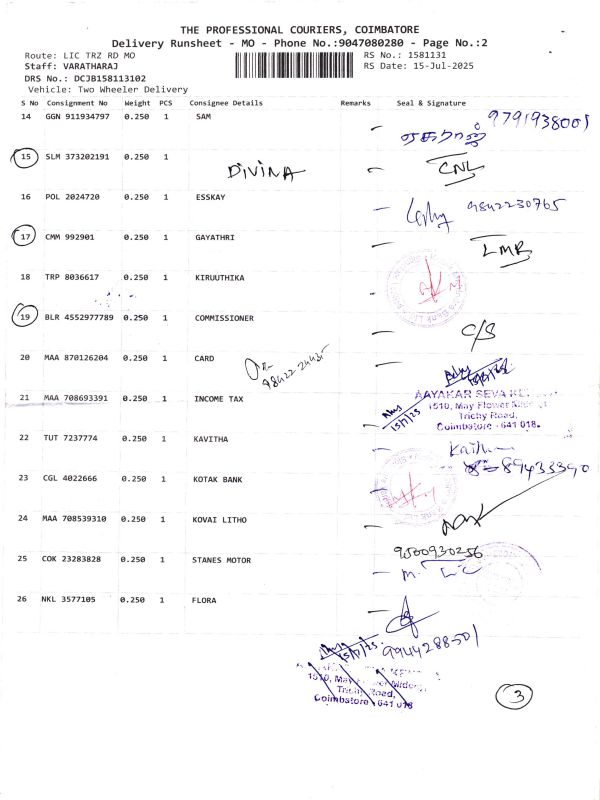 THE PROFESSIONAL COURIERS, COIMBATORE
Delivery Runsheet - MO - Phone No.:9047080280 - Page No.:2
Route: LIC TRZ RD MO RS No.: 1581131
Staff: VARATHARAJ RS Date: 15-Jul-2025
DRS No.: DCJB158113102
Vehicle: Two Wheeler Delivery
S No Consignment No Weight PCS Consignee Details Remarks Seal & Signature
14 GGN 911934797 0.250 1 SAM 9791938001
ஏகராஜ்
15 SLM 373202191 0.250 1 DIVINA CNL
16 POL 2024720 0.250 1 ESSKAY 9842230765
17 CMM 992901 0.250 1 GAYATHRI LMR
18 TRP 8036617 0.250 1 KIRUUTHIKA
19 BLR 4552977789 0.250 1 COMMISSIONER C/S
20 MAA 870126204 0.250 1 CARD
21 MAA 708693391 0.250 1 INCOME TAX 15/7/25
AAYAKAR SEVA
1510, May Flower
Trichy Road,
Coimbatore - 641 018.
22 TUT 7237774 0.250 1 KAVITHA
23 CGL 4022666 0.250 1 KOTAK BANK
24 MAA 708539310 0.250 1 KOVAI LITHO
25 COK 23283828 0.250 1 STANES MOTOR 9500930256
26 NKL 3577105 0.250 1 FLORA
15/7/25 9944288501
1510, May
Trichy Road,
Coimbatore - 641 018
3